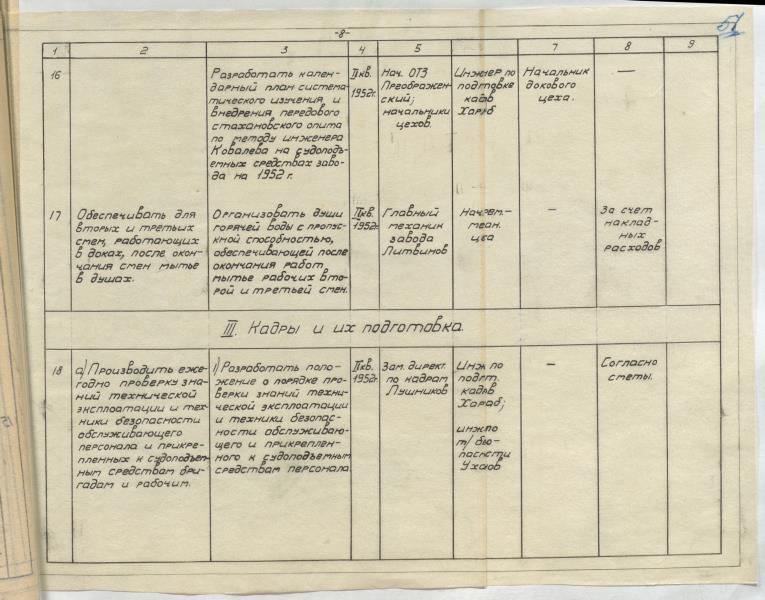 -8-
57
1 2 3 4 5 7 8 9
16
Разработать кален-
дарный план система-
тического изучения и
внедрения передового
стахановского опыта
по методу инженера
Ковалева на судоподъ-
емных средствах заво-
да на 1952 г.
II кв.
1952г.
Нач. ОТЗ
Преображен-
ский;
начальники
цехов.
Инженер по
подготовке
кадров
Хараб
Начальник
докового
цеха.
—
17
Обеспечивать для
вторых и третьих
смен, работающих
в доках, после окон-
чания смен мытье
в душах.
Организовать души
горячей воды с пропус-
кной способностью,
обеспечивающей после
окончания работ
мытье рабочих вто-
рой и третьей смен.
II кв.
1952г.
Главный
механик
завода
Литвинов
Нач. рем.-
механ.
цеха
—
За счет
наклад-
ных
расходов
III. Кадры и их подготовка.
18
а) Производить еже-
годно проверку зна-
ний технической
эксплоатации и тех-
ники безопасности
обслуживающего
персонала и прикре-
пленных к судоподъем-
ным средствам бри-
гадам и рабочим.
1) Разработать поло-
жение о порядке про-
верки знаний техни-
ческой эксплоатации
и техники безопас-
ности обслуживаю-
щего и прикреплен-
ного к судоподъемным
средствам персонала
II кв.
1952г.
Зам. директ.
по кадрам
Лушников
Инж по
подгот.
кадров
Хараб;
инж по
т/безо-
пасности
Ухалов
—
Согласно
сметы.